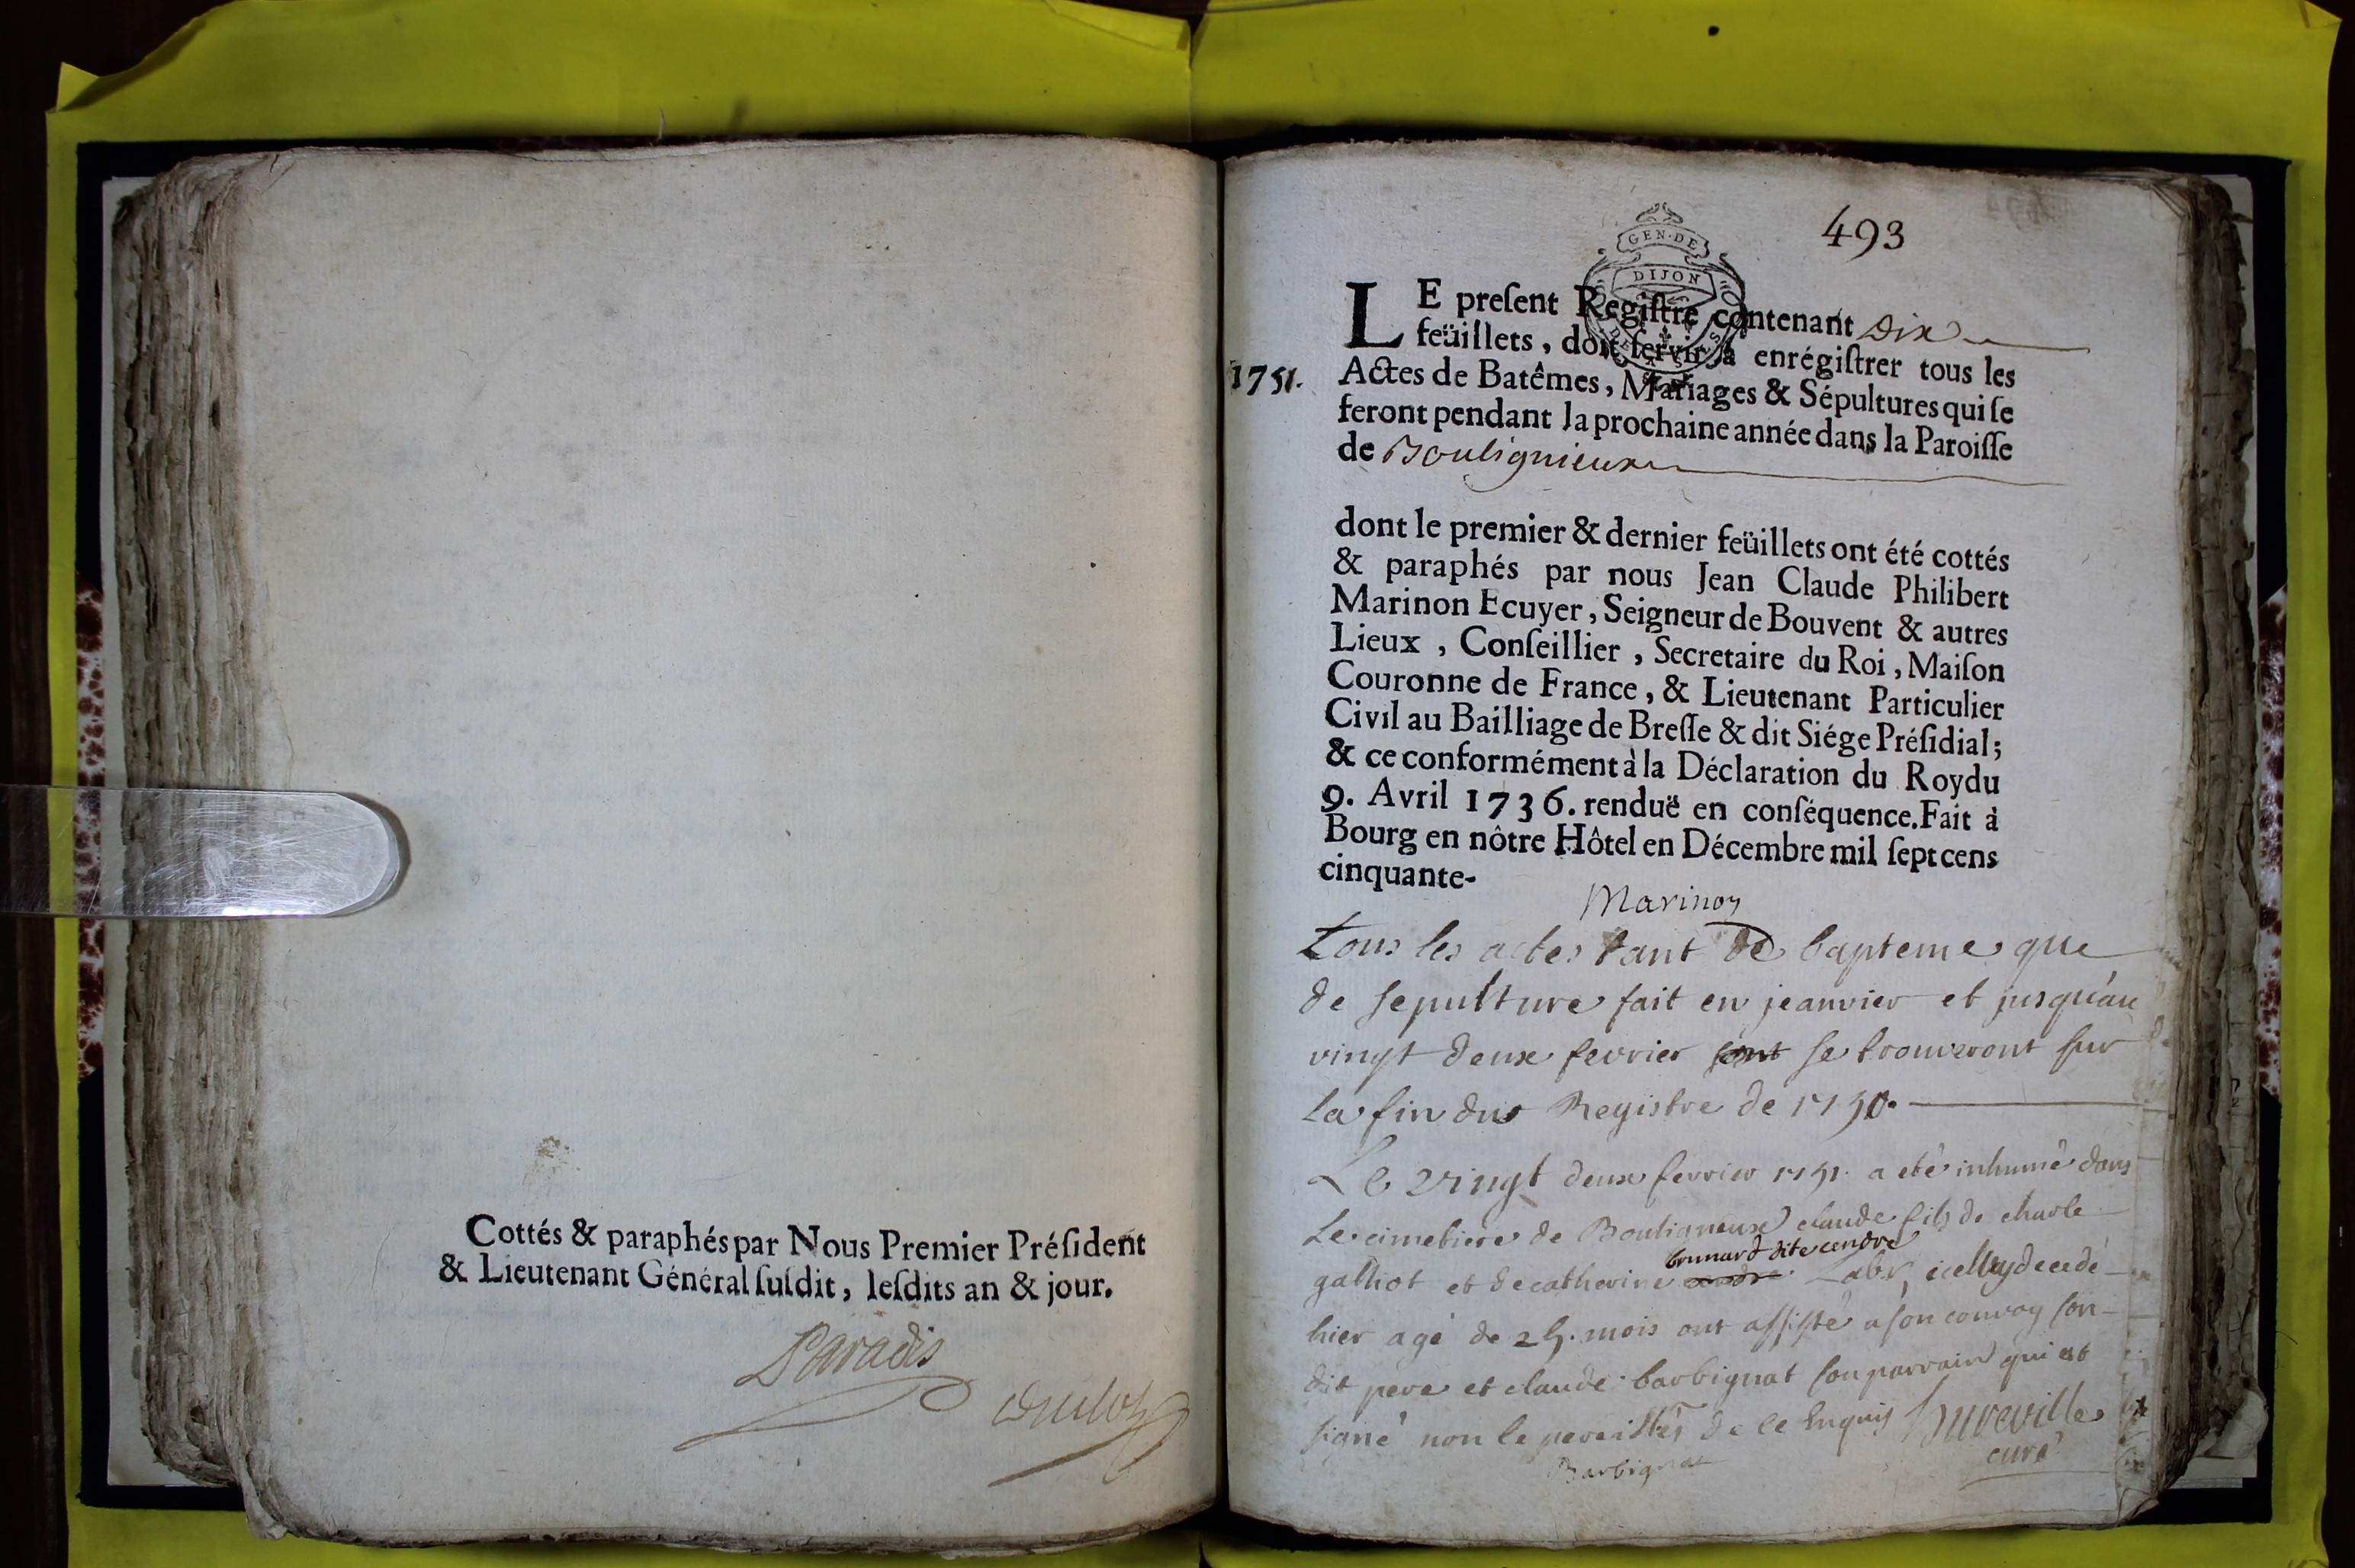 Cottés & paraphés par Nous Premier Préſident
& Lieutenant Général ſuſdit, leſdits an & jour.
Paradis
493
GEN·DE
DIJON
LE preſent Regiſtre contenant Dix
feüillets, doit ſervir à enrégiſtrer tous les
1751.
Actes de Batêmes, Mariages & Sépultures qui ſe
feront pendant la prochaine année dans la Paroiſſe
de Boulignieux
dont le premier & dernier feüillets ont été cottés
& paraphés par nous Jean Claude Philibert
Marinon Ecuyer, Seigneur de Bouvent & autres
Lieux, Conſeillier, Secretaire du Roi, Maiſon
Couronne de France, & Lieutenant Particulier
Civil au Bailliage de Breſſe & dit Siége Préſidial;
& ce conformément à la Déclaration du Roy du
9. Avril 1736. renduë en conſéquence. Fait à
Bourg en nôtre Hôtel en Décembre mil ſept cens
cinquante-
Marinon
tous les actes tant de bapteme que
de sepulture fait en jeanvier et jusqu'au
vingt deux fevrier sont se trouveront sur
la fin du Registre de 1750.
Le vingt deux fevrier 1751. a eté inhumé dans
le cimetiere de Bouligneux claude fils de charle
brunard dite cendre
galliot et de catherine icelluy decedé
hier agé de 25. mois ont assisté a son convoy son
dit pere et claude barbignat son parrain qui est
signé non le pere de ce Enquis hureville
Barbignat
curé